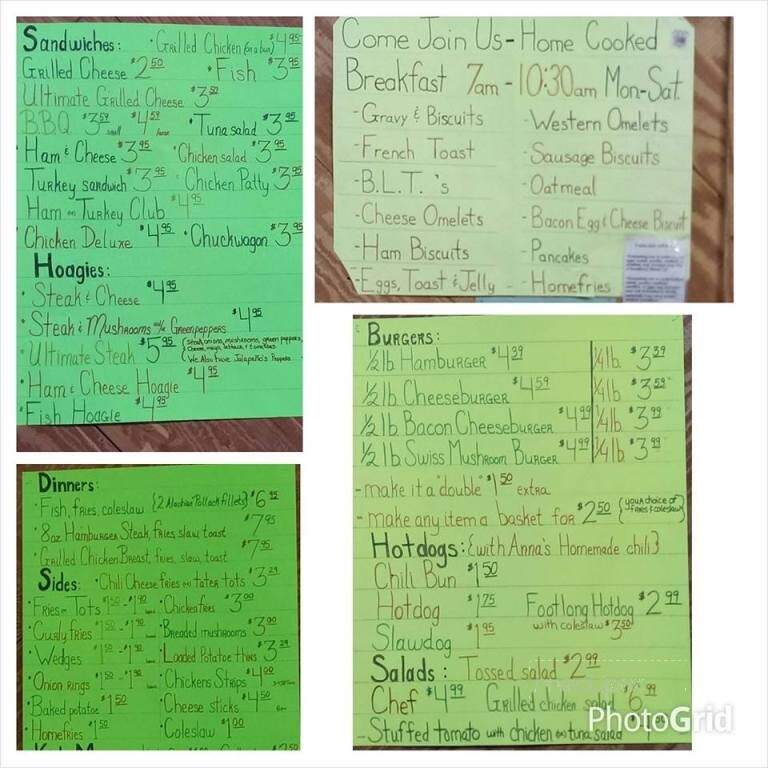 Sandwiches: • Grilled Chicken (on a bun) $4.95
Grilled Cheese $2.50 • Fish $3.95
Ultimate Grilled Cheese $3.50
B.B.Q $3.59 small $4.59 large • Tuna salad $3.95
Ham & Cheese $3.95 • Chicken salad $3.95
Turkey sandwich $3.95 Chicken Patty $3.95
Ham or Turkey Club $4.95
Chicken Deluxe $4.95 • Chuckwagon $3.95
Hoagies:
• Steak & Cheese $4.95
• Steak & Mushrooms w/ Greenpeppers $4.95
• Ultimate Steak $5.95 {Steak, onions, mushrooms, green peppers,
cheese, mayo, lettuce, & tomatoes.
We Also have Jalapeño's Peppers
• Ham & Cheese Hoagie $4.95
• Fish Hoagie $4.95
Come Join Us - Home Cooked
Breakfast 7am - 10:30am Mon-Sat.
- Gravy & Biscuits - Western Omelets
- French Toast - Sausage Biscuits
- B.L.T. 's - Oatmeal
- Cheese Omelets - Bacon Egg & Cheese Biscuit
- Ham Biscuits - Pancakes
- Eggs, Toast & Jelly - - Homefries
Dinners:
• Fish, fries, coleslaw {2 Alaskan Pollock fillets} $6.95
• 8oz Hamburger Steak, fries, slaw, toast $7.95
• Grilled Chicken Breast, fries, slaw, toast $7.95
Sides: • Chili Cheese fries or tater tots $3.29
• Fries or Tots $1.50 - $1.90 • Chicken fries $3.00
• Curly fries $1.50 - $1.90 • Breaded mushrooms $3.00
• Wedges $1.50 - $1.90 • Loaded Potatoe thins $3.29
• Onion rings $1.50 - $1.90 • Chickens Strips $4.00
• Baked potatoe $1.50 • Cheese sticks $4.50
• Homefries $1.50 • Coleslaw $1.00
Burgers:
1/2 lb Hamburger $4.39 1/4 lb $3.39
1/2 lb Cheeseburger $4.59 1/4 lb $3.59
1/2 lb Bacon Cheeseburger $4.99 1/4 lb $3.99
1/2 lb Swiss Mushroom Burger $4.99 1/4 lb $3.99
- make it a "double" $1.50 extra
- make any item a basket for $2.50 {your choice of
fries & coleslaw}
Hotdogs: {with Anna's Homemade chili}
Chili Bun $1.50
Hotdog $1.75 Footlong Hotdog $2.99
with coleslaw $3.50
Slawdog $1.95
Salads: Tossed salad $2.99
Chef $4.99 Grilled chicken salad $6.99
- Stuffed tomato with chicken or tuna salad
PhotoGrid